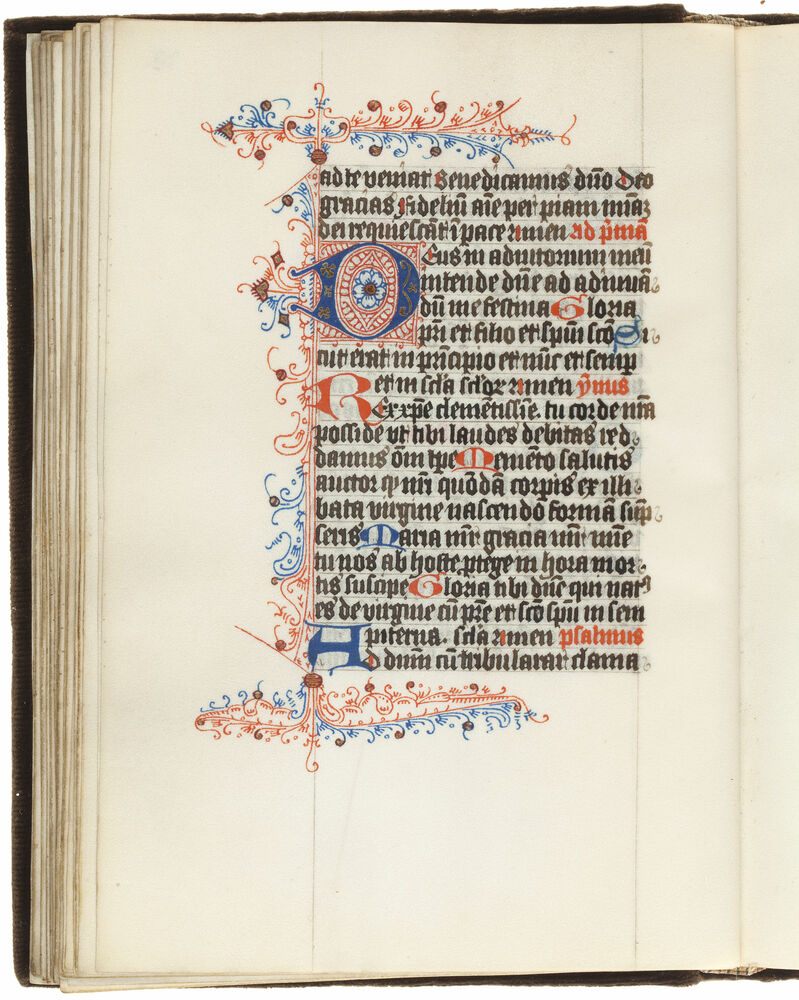 ad te veniat Benedicamus dn̄o Deo
gracias Fideliū aīe per piam mīaz
dei requiescāt ī pace Amen ad p̄mā
Deus in adiutorium meū
intende dn̄e ad adiuvā
dū me festina Gloria
pr̄i et filio et spūi scō Si
cut erat in prīcipio et nūc et semp
Et in scl̄a scl̄oꝝ Amen ȳmus
Rex xp̄e clemētissīe. tu corde nr̄a
posside vt tibi laudes debitas red
damus om̄i tp̄e Memēto salutis
auctor qꝫ nr̄i quōdā corpīs ex illi
bata virgine nascendo formā sūp
seris Maria mr̄ gracia mr̄ mīe
tu nos ab hoste ꝓtege in hora mor
tis suscipe Gloria tibi dn̄e qui natꝰ
es de virgine cū pr̄e et scō spū in sem
piterna. scl̄a Amen psalmus
Ad dnm̄ cū tribularer clama